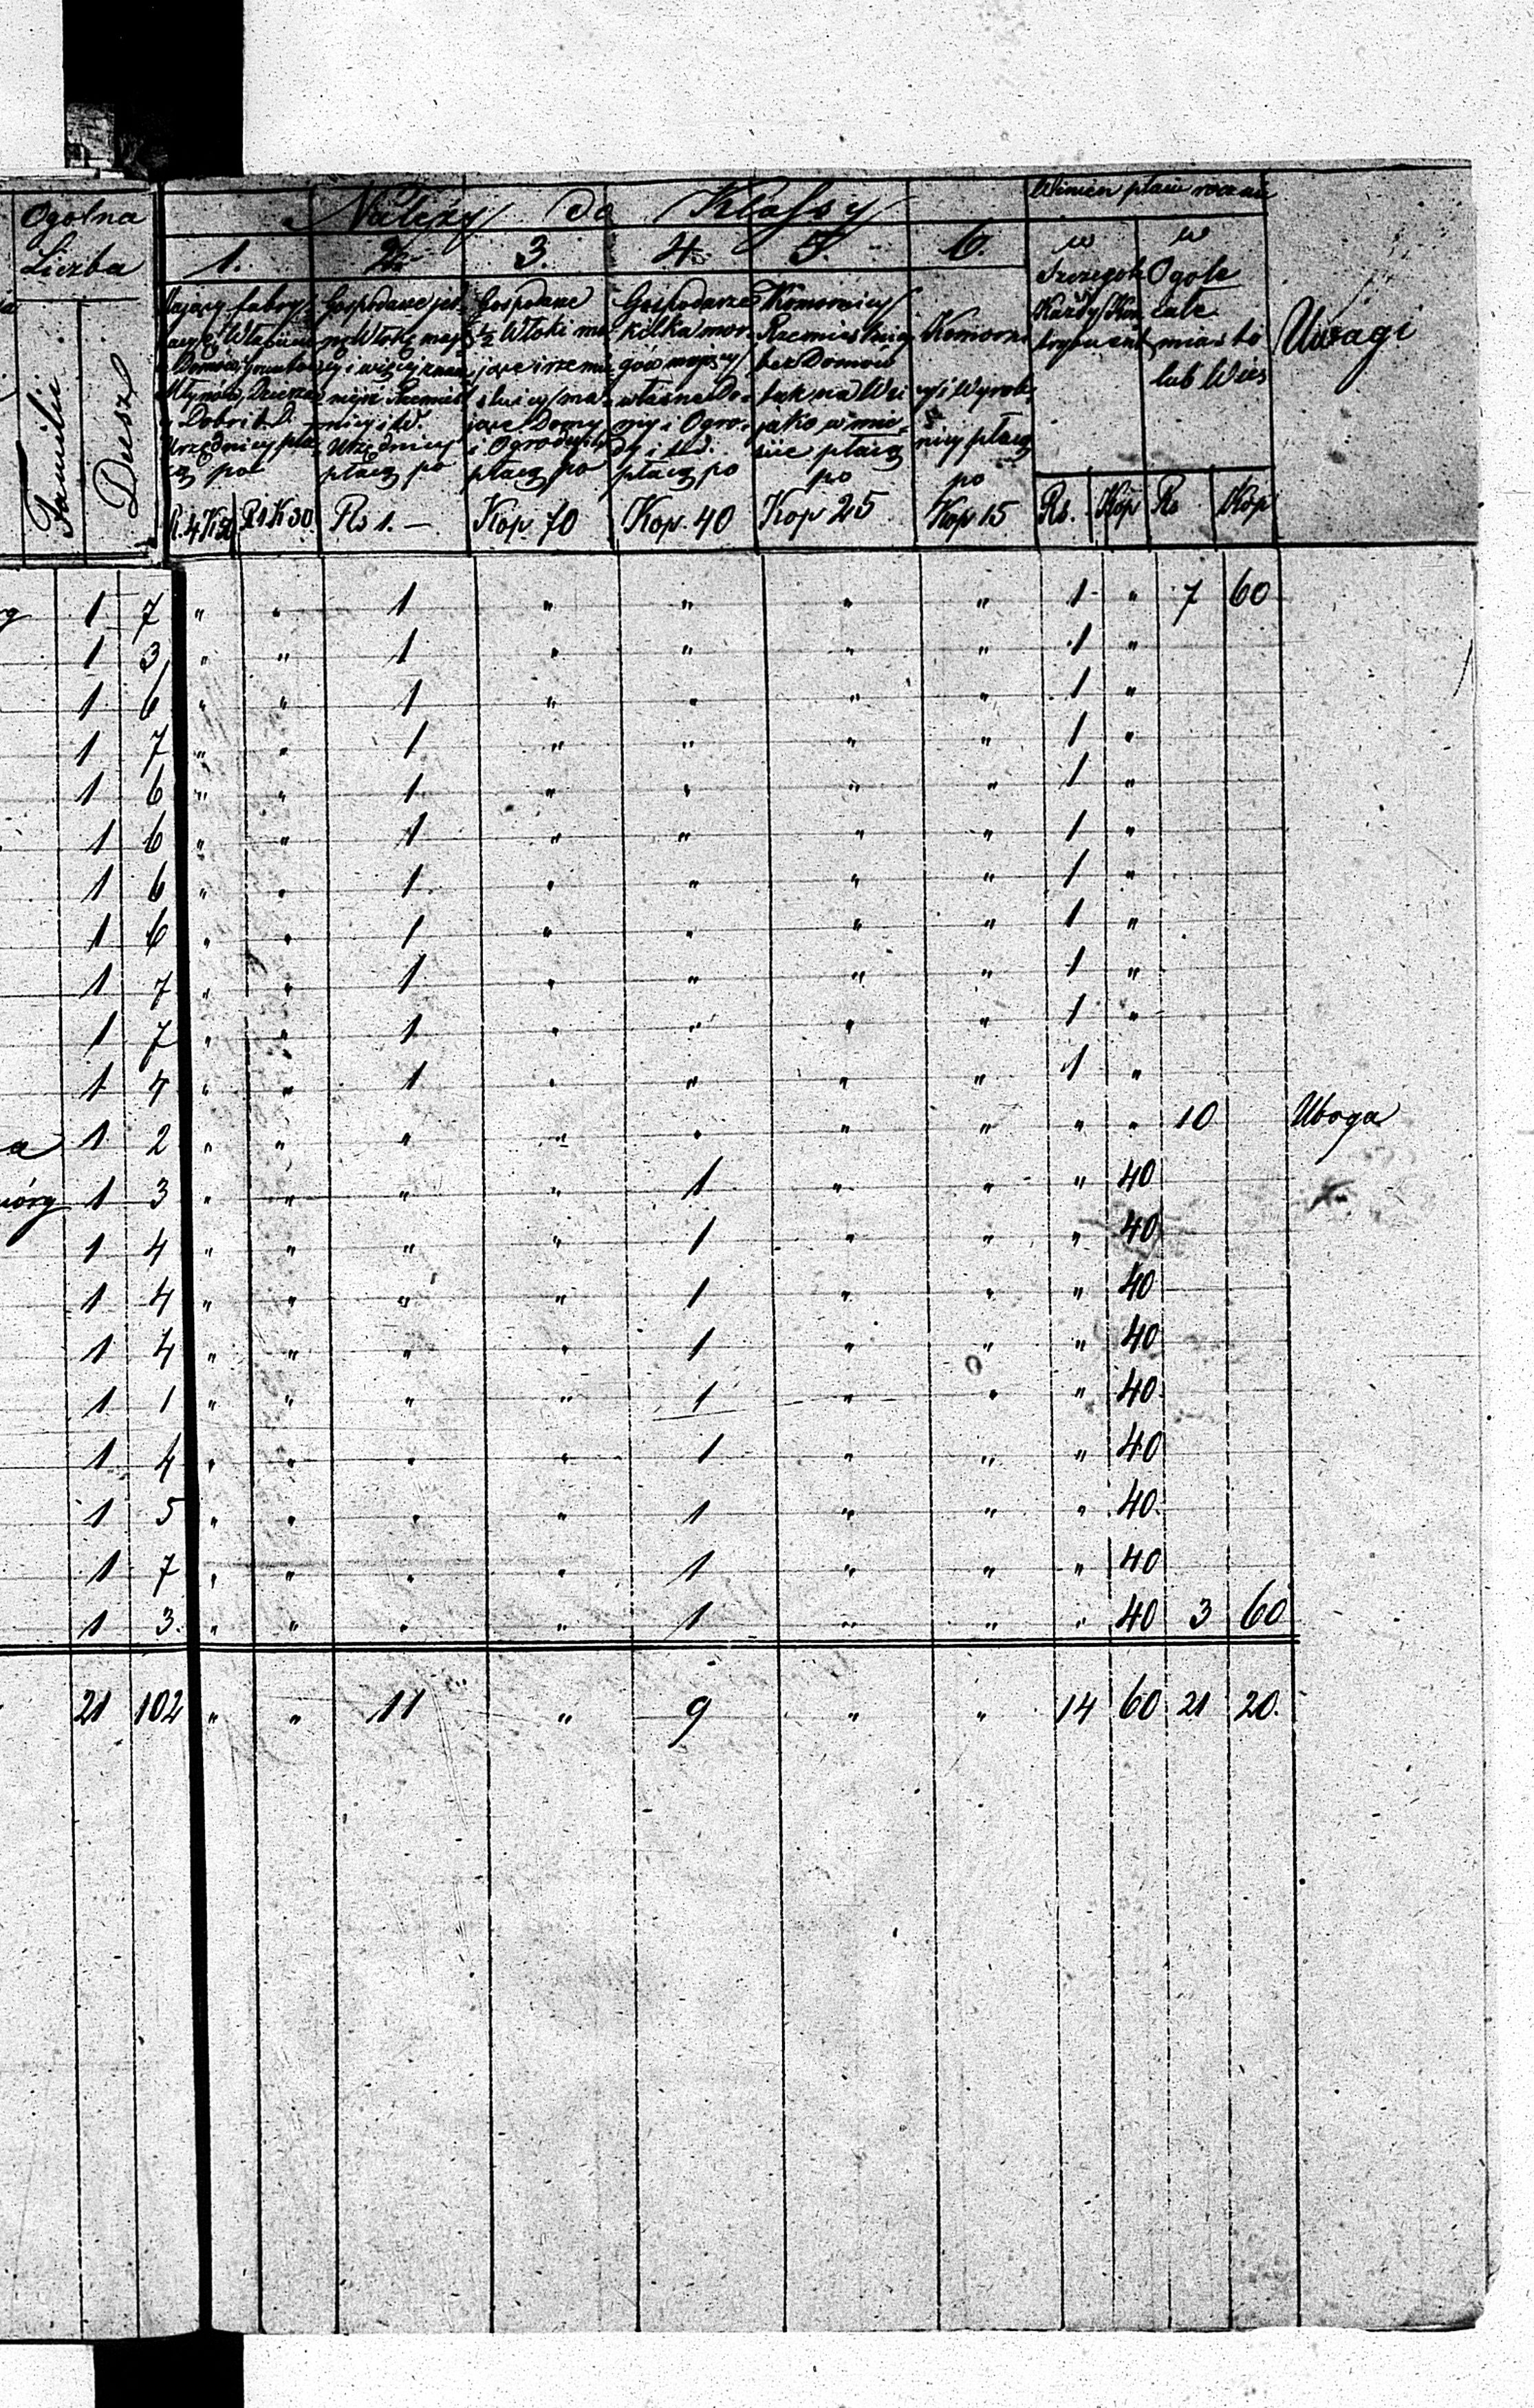 Ogolna
Liczba
Familii
Dusz
Należy do Klassy
1. 2. 3. 4. 5. 6.
Gospodarze jed-
Urzędnicy
płacą po
Gospodarze
½ Włoki ma-
jące Domy
płacą po
Gospodarze
kilka mor-
gów mający
własne Do-
my i Ogro-
dy i t.d.
płacą po
Komornicy
Rzemieślnicy
bez Domów
tak na Wsi
jako w mie-
ście płacą
po
Komorni-
cy i Wyrob-
nicy płacą
po
R. 4 K 50 R 1 K 30 Rs 1. — Kop. 70 Kop. 40 Kop 25 Kop 15
Winien płacić rocznie
w
Szczegole
Każdy Kon-
trybuent
w
Ogole
całe
miasto
lub Wieś
Rs. Kop Rs Kop
Uwagi
1 7 " " 1 " " " " 1 " 7 60
1 3 " " 1 " " " " 1 "
1 6 " " 1 " " " " 1 "
1 7 " " 1 " " " " 1 "
1 6 " " 1 " " " " 1 "
1 6 " " 1 " " " " 1 "
1 6 " " 1 " " " " 1 "
1 6 " " 1 " " " " 1 "
1 7 " " 1 " " " " 1 "
1 7 " " 1 " " " " 1 "
1 4 " " 1 " " " " 1 "
a 1 2 " " " " " " " " " 10 Uboga
mórg 1 3 " " " " 1 " " " 40
1 4 " " " " 1 " " " 40
1 4 " " " " 1 " " " 40
1 4 " " " " 1 " " " 40
1 1 " " " " 1 " " " 40
1 4 " " " " 1 " " " 40
1 5 " " " " 1 " " " 40
1 7 " " " " 1 " " " 40
1 3 " " " " 1 " " " 40 3 60
21 102 " " 11 " 9 " " 14 60 21 20.